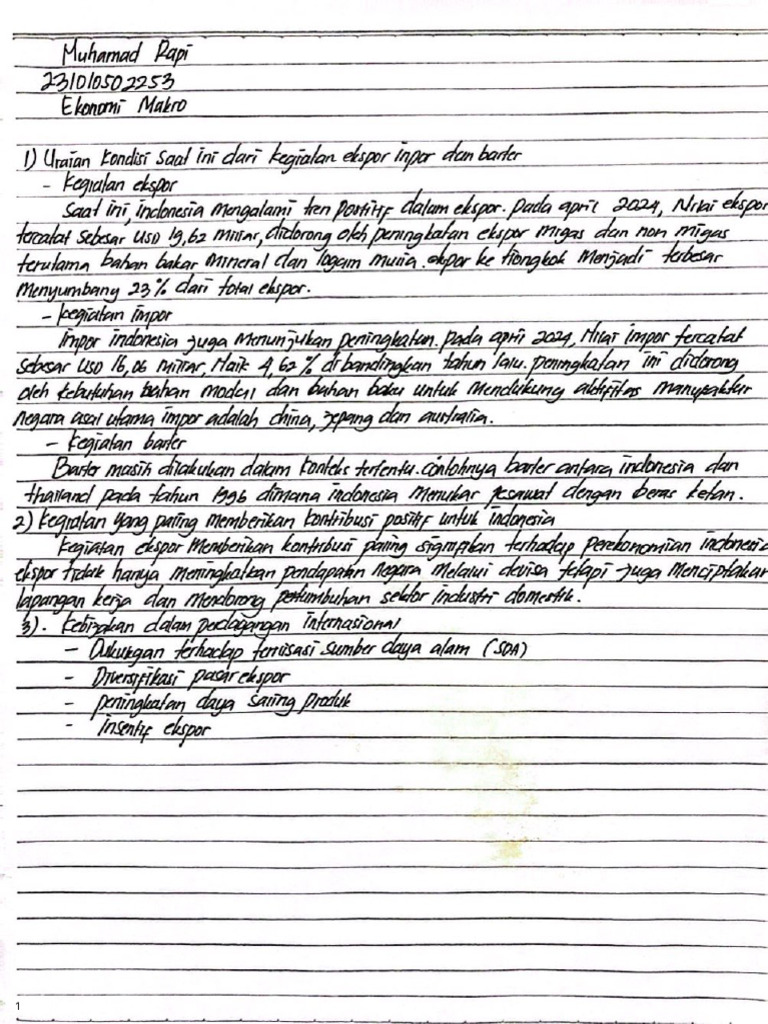 Muhamad Rapi
231010502253
Ekonomi Makro
1) Uraian Kondisi Saat ini dari kegiatan ekspor inpor dan barter
- Kegiatan ekspor
Saat ini, indonesia mengalami tren positif dalam ekspor. pada april 2024, Nilai ekspor
tercatat sebesar USD 19,62 miliar, didorong oleh peningkatan ekspor migas dan non migas
terutama bahan bakar mineral dan logam mulia. ekpor ke tiongkok Menjadi terbesar
Menyumbang 23% dari total ekspor.
- kegiatan impor
Impor indonesia juga Menunjukan peningkatan. pada april 2024, Nilai impor tercatat
sebesar USD 16,06 miliar, Naik 4,62% dibandingkan tahun lalu. peningkatan ini didorong
oleh kebutuhan bahan modal dan bahan baku untuk Mendukung aktifitas manupaktur
Negara asal utama impor adalah china, jepang dan australia.
- kegiatan barter
Barter masih dilakukan dalam konteks tertentu. contohnya barter antara indonesia dan
thailand pada tahun 1996 dimana indonesia Menukar pesawat dengan beras ketan.
2) kegiatan yang paling memberikan kontribusi positif untuk indonesia
Kegiatan ekspor Memberikan kontribusi paling signifikan terhadap perekonomian indonesia
ekspor tidak hanya meningkatkan pendapatan negara melalui devisa tetapi juga Menciptakan
lapangan kerja dan Mendorong pertumbuhan sektor industri domestik.
3). Kebijakan dalam perdagangan internasional
- Dukungan terhadap
sumber daya alam (SDA)
- Diversifikasi pasar ekspor
- peningkatan daya saing Produk
- insentif ekspor
1